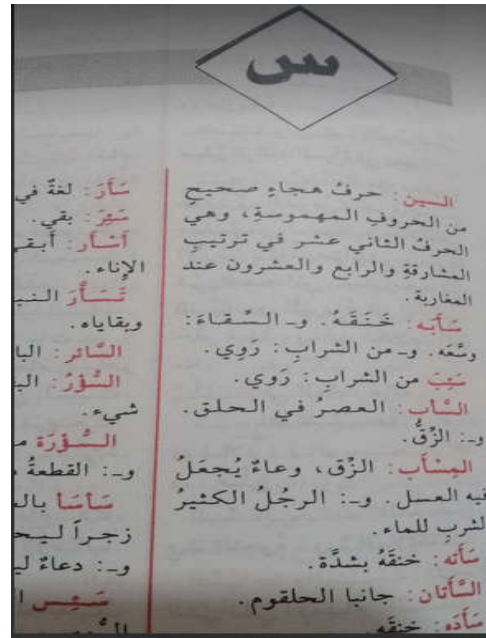 س
السين: حرفُ هجاءٍ صحيحٍ
من الحروفِ المهموسةِ، وهي
الحرفُ الثاني عشر في ترتيبِ
المشارقةِ والرابع والعشرون عند
المغاربة.
سَأَبَه: خَنَقَهُ. و- السِّقاءَ:
وسَّعَه. و- من الشرابِ: رَوِي.
سَئِبَ من الشرابِ: رَوي.
السَّأب: العصرُ في الحلق.
و-: الزِّقُّ.
المِسْأَب: الزِّق، وعاءٌ يُجعَلُ
فيه العسل. و-: الرجُلُ الكثيرُ
الشربِ للماء.
سَأَته: خنقَهُ بشدَّة.
السَّأْتان: جانبا الحلقوم.
سَأَدَه: خنقه
سَأَرَ: لغةٌ في
سَئِرَ: بقي.
أَسْأَر: أبقى
الإناء.
تَسَأَّرَ النبيـ
وبقاياه.
السَّائر: البا
السُّؤْرُ: البـ
شيء.
السُّؤْرَة مـ
و-: القطعةُ
سَأسَأ بالـ
زجراً ليـحـ
و-: دعاءٌ ليـ
سَـئِـس ا